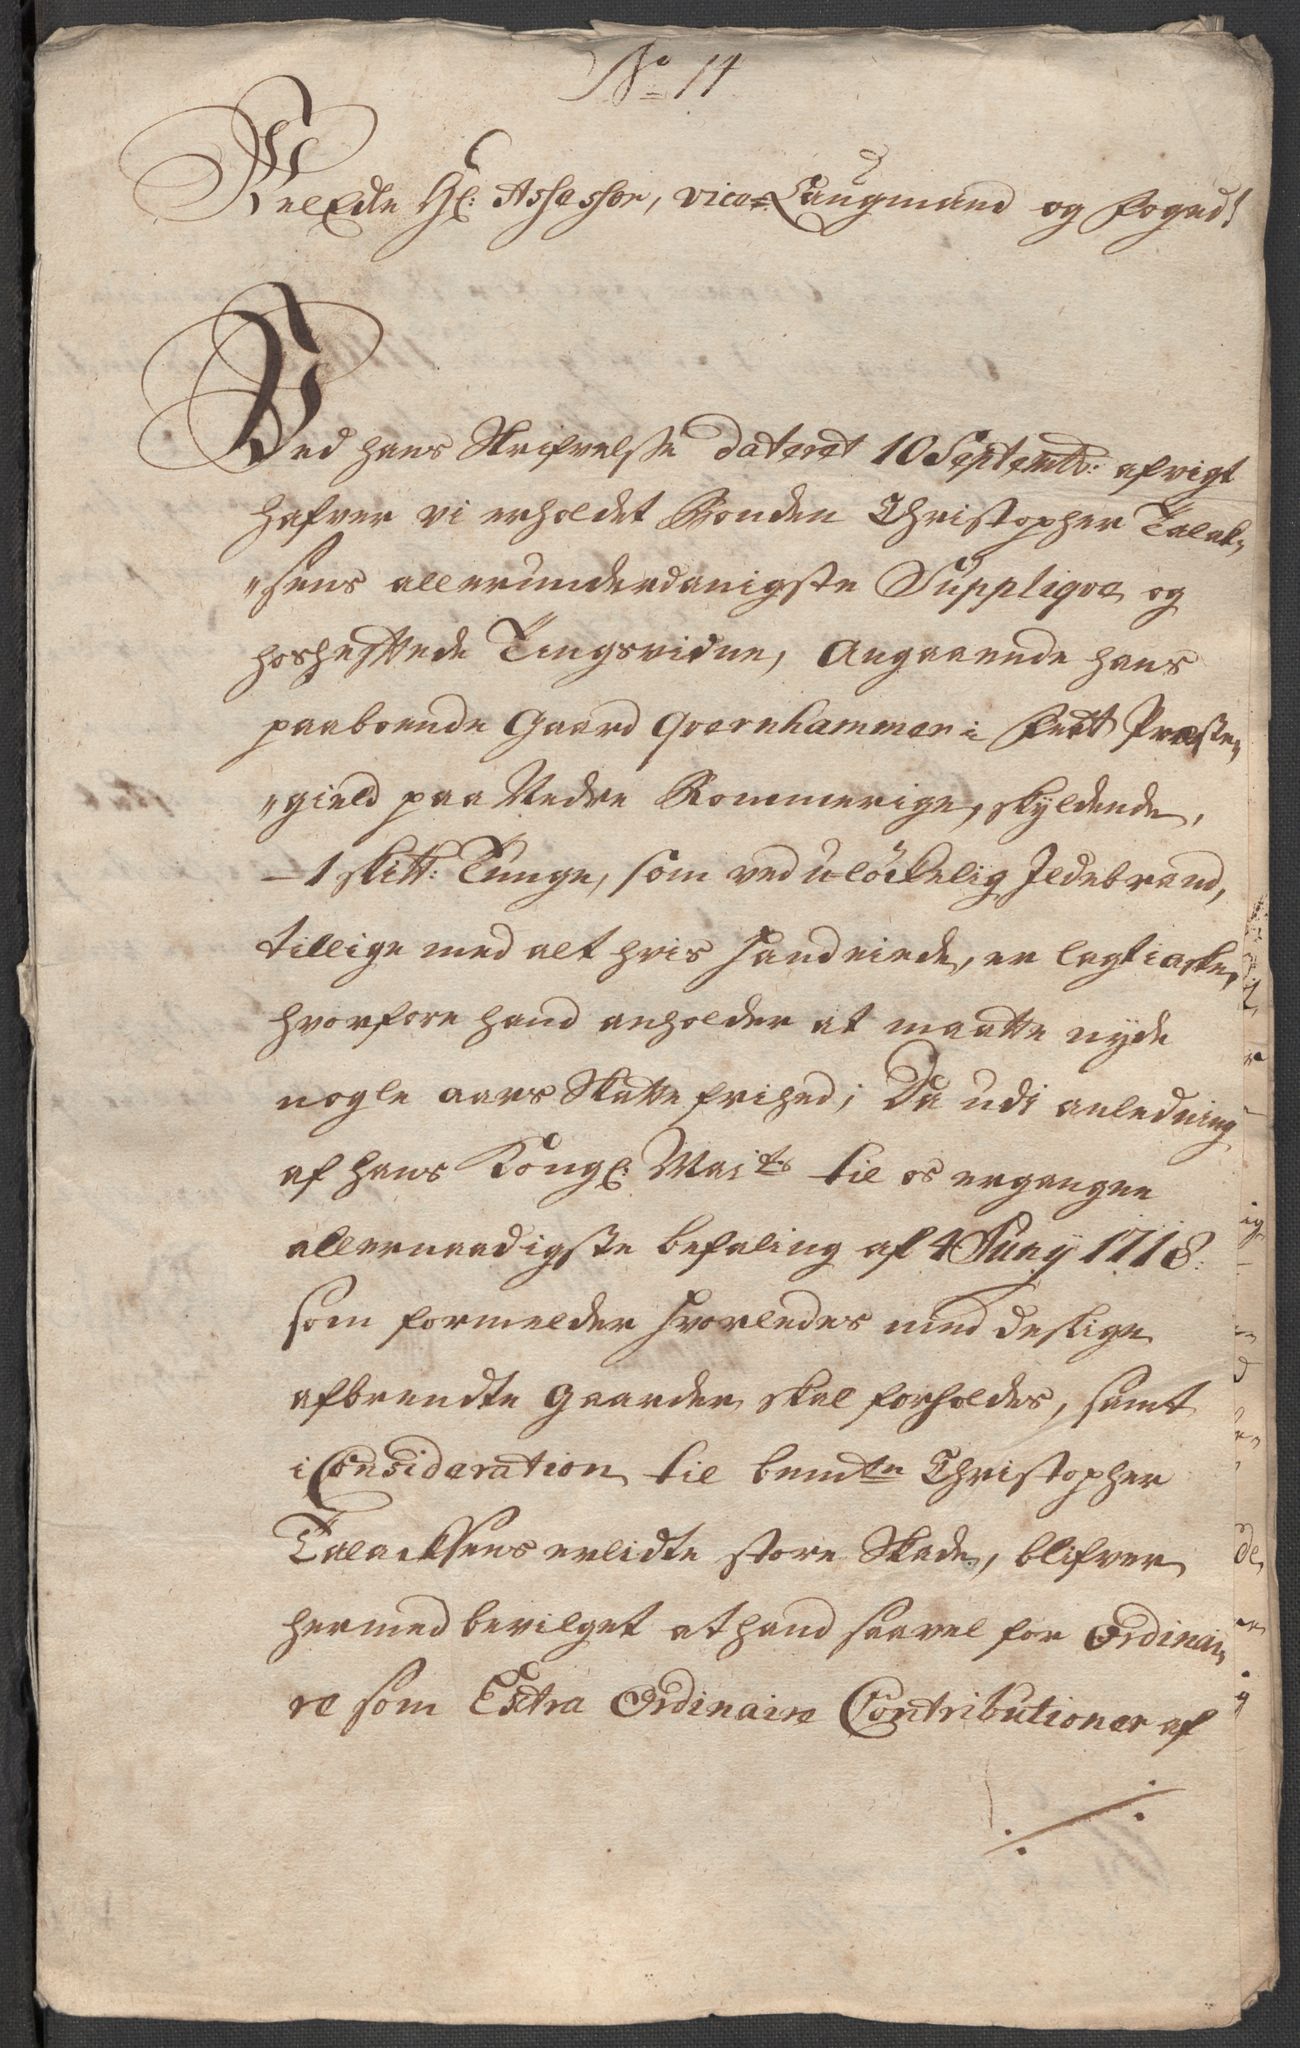 No 14
VelEdle Hl: Assessor, vice=Laugmand og Foged!
Ved hans Skrifvelse dateret 10 Septembr: afvigt
hafver vi erholdet Bonden Christopher Talak„
„sens allerunderdanigste Suppliqve og
hoshefttede Tingsvidne, Angaaende hans
paaboende Gaard Qvernhammer i Feet Præste„
„gield paa Nedre Rommerige, skyldende,
– 1 skltt: Tunge, som ved ulöckelig Jldebrand,
tillige med alt hvis hand eiede, er lagt i aske,
hvorfore hand anholder at maatte nyde
nogle aars Skatte frihed; Da udi anledning
af hans Kongl: Maits til os ergangne
allernaadigste befaling af 4 Juny 1718:
som formelder hvorledes med deslige
afbrendte Gaarder skal forholdes, samt
i Consideration til bemdte Christopher
Talacksens erlidte store Skade, blifver
hermed bevilget at hand saavel for Ordinai„
re som Extra Ordinaire Contributioner af